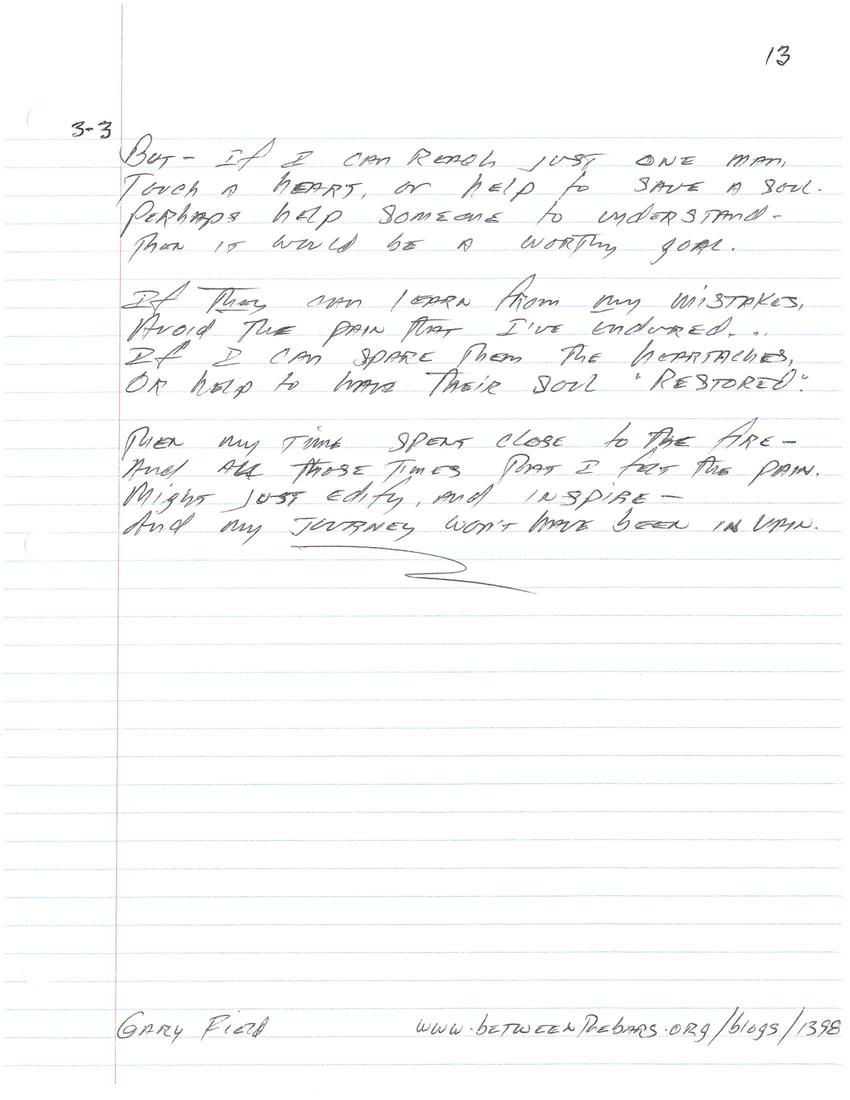 13
3-3
But - If I can Reach just one man,
Touch a heart, or help to save a soul.
Perhaps help someone to understand -
Then it would be a worthy goal.
If They can learn from my mistakes,
Avoid the pain that I've endured...
If I can spare them the heartaches,
Or help to have their soul "Restored".
Then my time spent close to the fire -
And all those times that I felt the pain.
Might just edify, and inspire -
And my journey won't have been in vain.
Gary Field
www.betweenthebars.org/blogs/1398